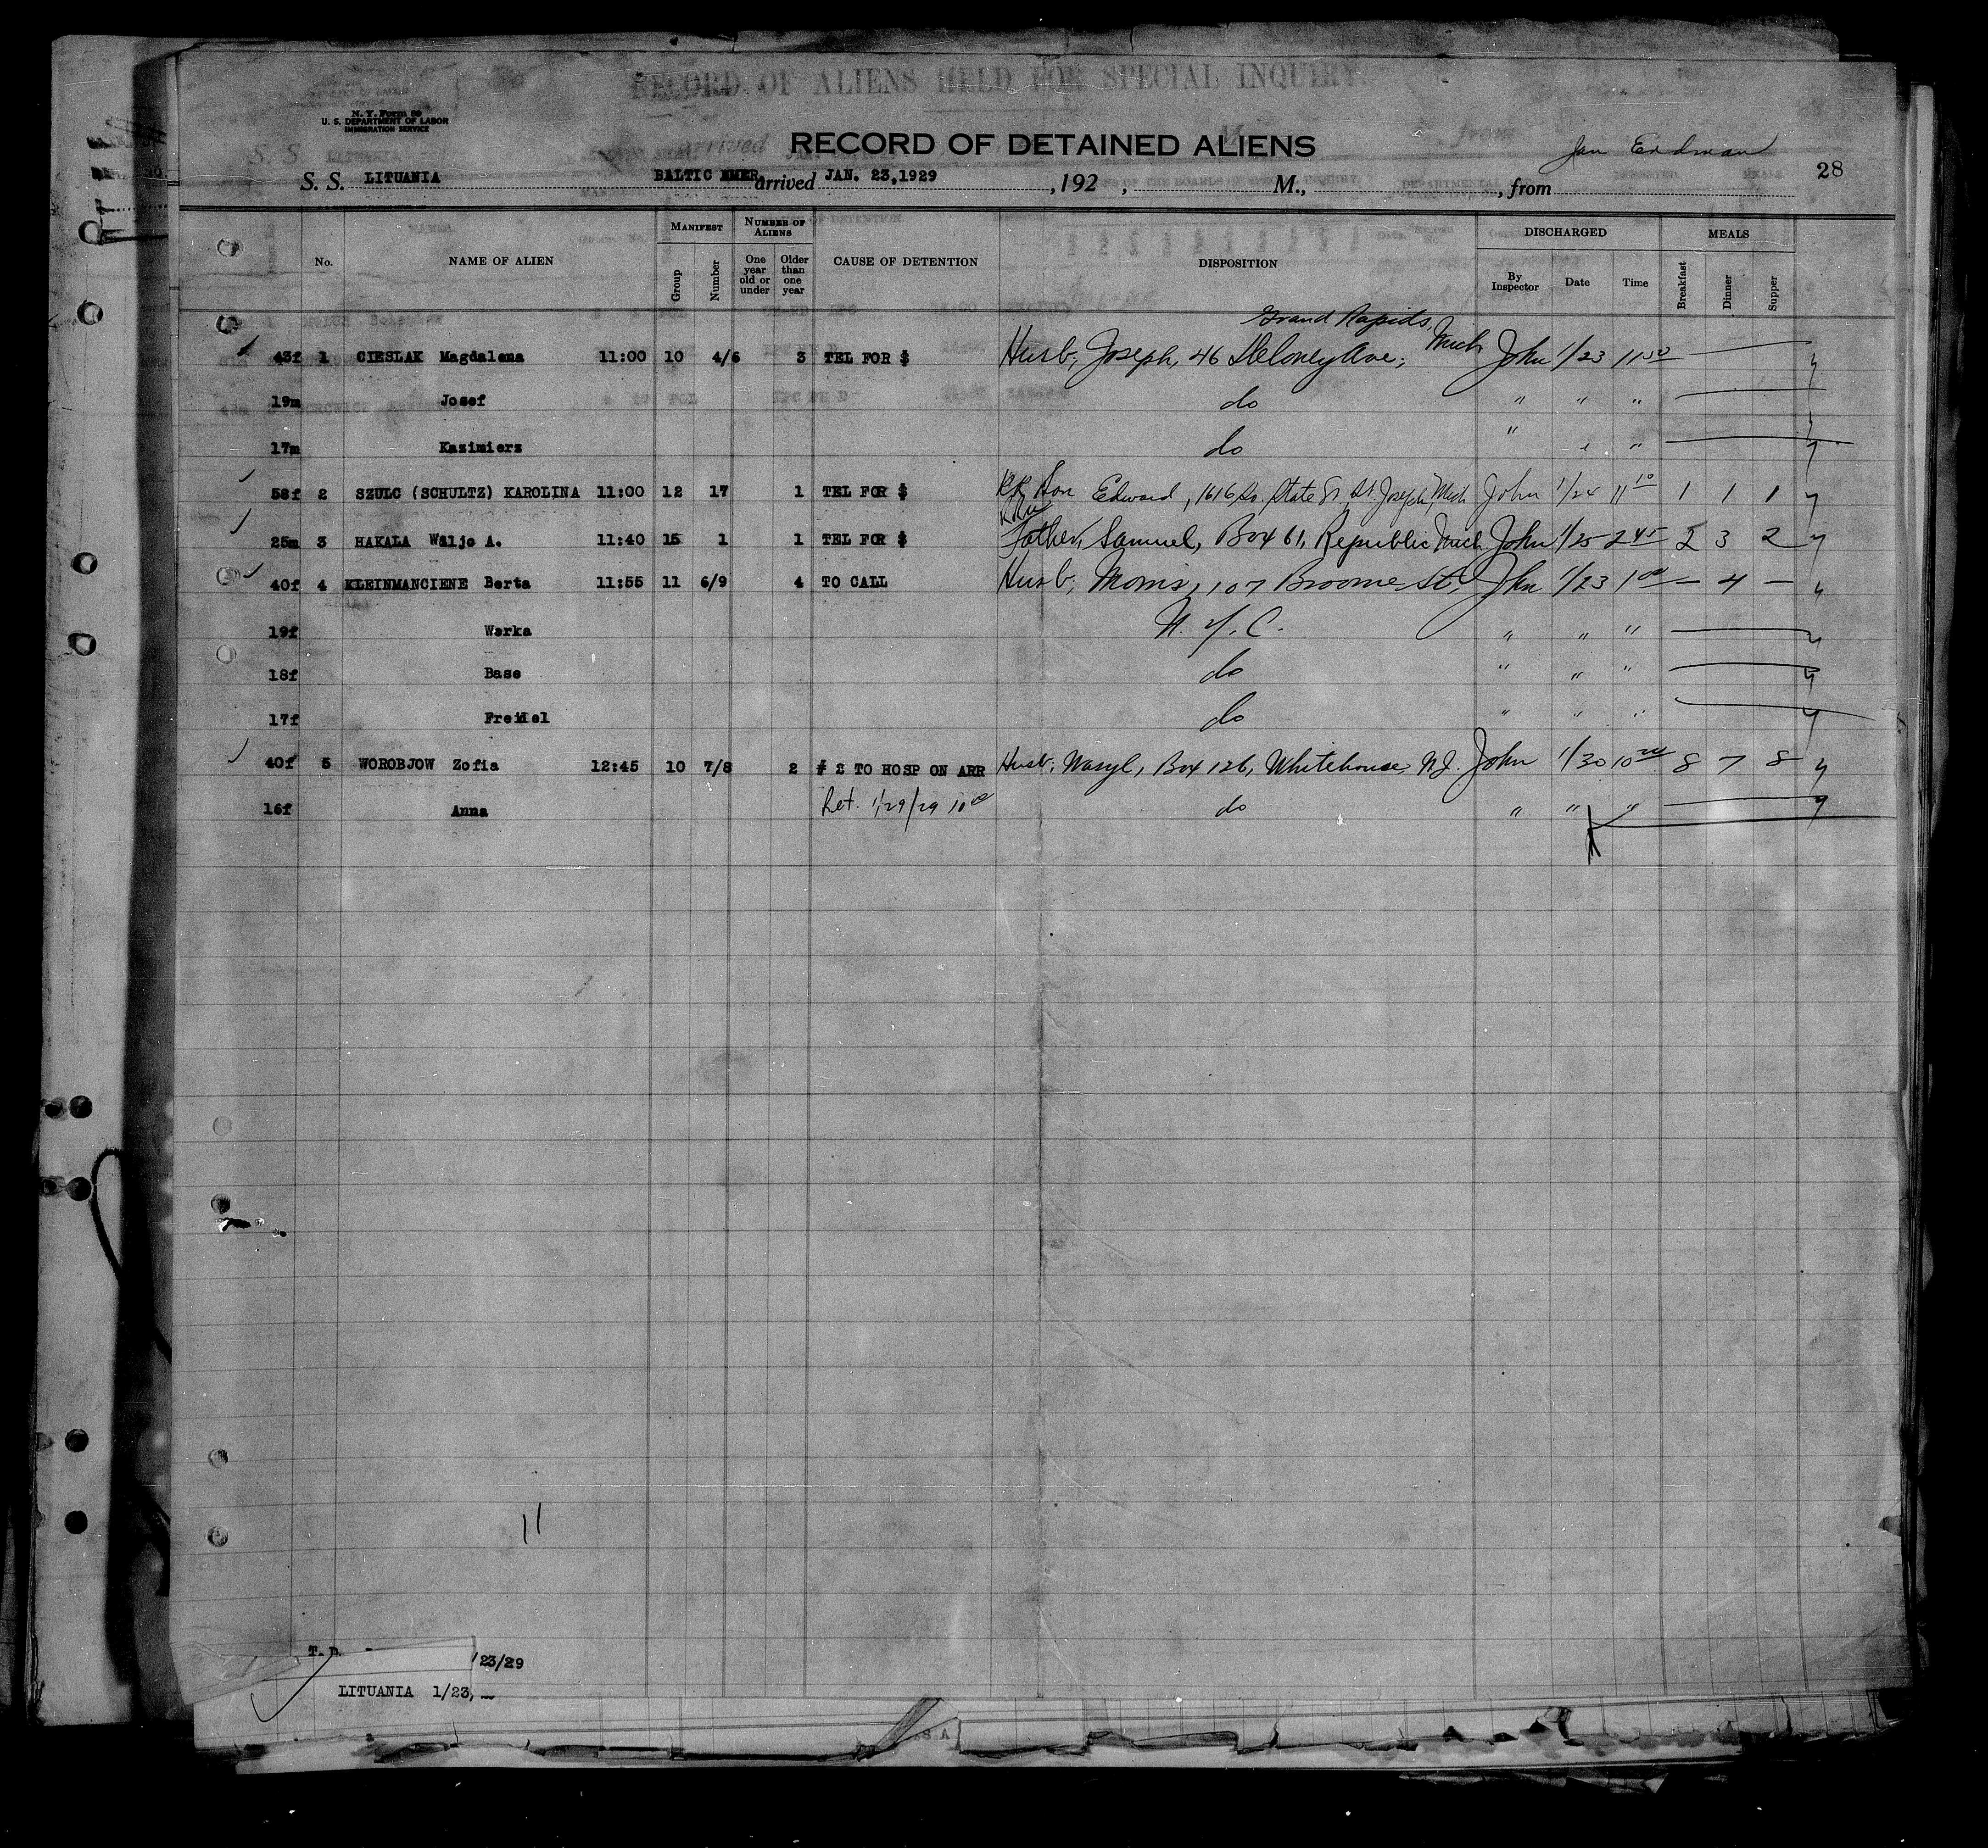 RECORD OF ALIENS HELD FOR SPECIAL INQUIRY
N. Y. Form 89
U. S. DEPARTMENT OF LABOR
IMMIGRATION SERVICE
RECORD OF DETAINED ALIENS
28
S. S. LITUANIA BALTIC AMER. arrived JAN. 23,1929 ,192 , M., , from
No. NAME OF ALIEN MANIFEST Group Number NUMBER OF ALIENS One year old or under Older than one year CAUSE OF DETENTION DISPOSITION DISCHARGED By Inspector Date Time MEALS Breakfast Dinner Supper
Grand Rapids,
43f 1 CIESLAK Magdalena 11:00 10 4/6 3 TEL FOR $ Husb, Joseph, 46 Deloney Ave; Mich John 1/23 11 50
19m Josef do " " "
17m Kazimierz do " " "
58f 2 SZULC (SCHULTZ) KAROLINA 11:00 12 17 1 TEL FOR $ Son Edward, 1616 So. State St, St. Joseph, Mich John 1/24 11 10 1 1 1
25m 3 HAKALA Waljo A. 11:40 15 1 1 TEL FOR $ Father, Samuel, Box 61, Republic Mich John 1/25 2 45 2 3 2
40f 4 KLEINMANCIENE Berta 11:55 11 6/9 4 TO CALL Husb, Morris, 107 Broome St, John 1/23 1 00 — 4 —
19f Werka N. Y. C. " " "
18f Base do " " "
17f Freidel do " " "
40f 5 WOROBJOW Zofia 12:45 10 7/8 2 # 2 TO HOSP ON ARR Husb, Wasyl, Box 126, Whitehouse, N.J. John 1/30 10 20 8 7 8
16f Anna Ret. 1/29/29 10 00 do " " "
11
T. D. /23/29
LITUANIA 1/23,